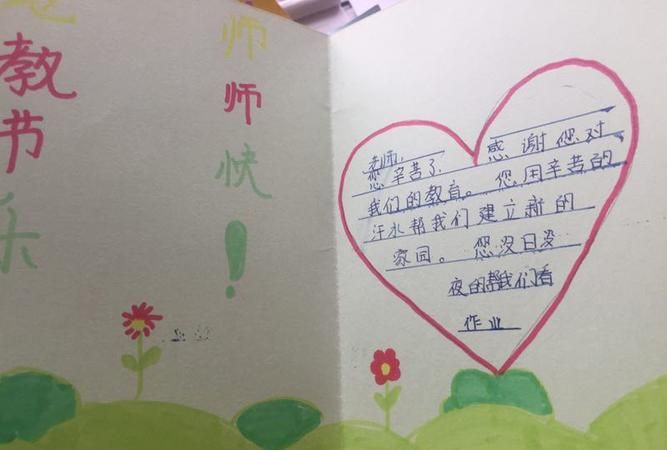 师
教师
节快
乐！
老师，
您辛苦了，感谢您对
我们的教育。您用辛苦的
汗水帮我们建立新的
家园。您没日没
夜的帮我们看
作业